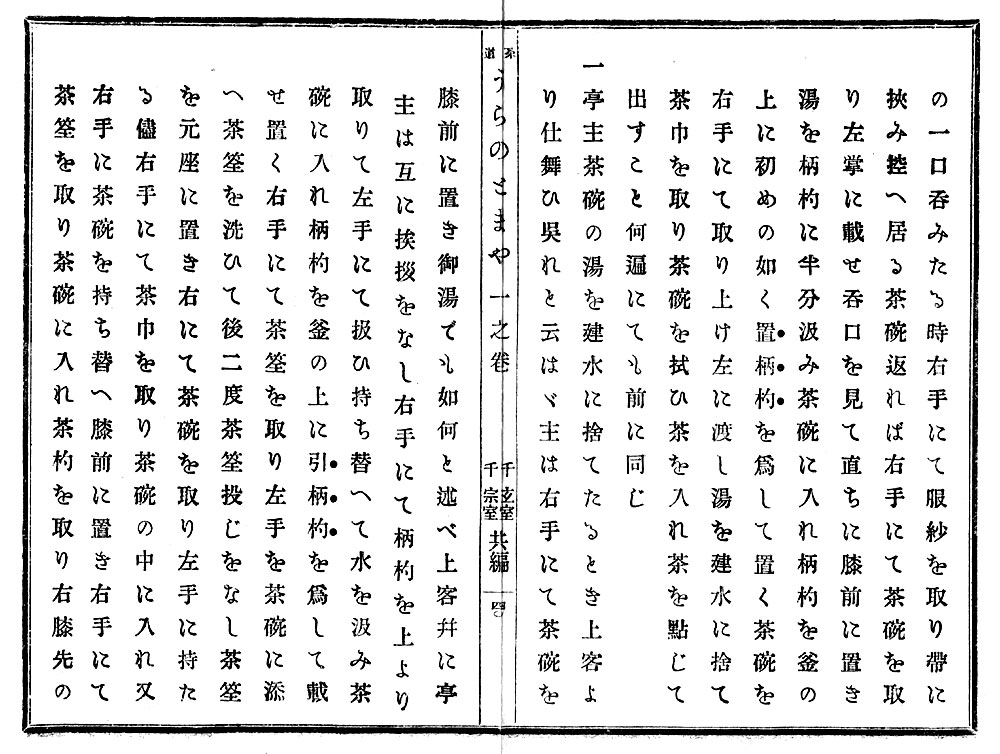 の一口呑みたる時右手にて服紗を取り帶に
挾み控へ居る茶碗返れば右手にて茶碗を取
り左掌に載せ呑口を見て直ちに膝前に置き
湯を柄杓に半分汲み茶碗に入れ柄杓を釜の
上に初めの如く置●柄●杓●を爲して置く茶碗を
右手にて取り上け左に渡し湯を建水に捨て
茶巾を取り茶碗を拭ひ茶を入れ茶を點じて
出すこと何遍にても前に同じ
一亭主茶碗の湯を建水に捨てたるとき上客よ
り仕舞ひ吳れと云はゞ主は右手にて茶碗を
茶道
うらのとまや 一之卷
千玄室
千宗室
共編
四
膝前に置き御湯ても如何と述べ上客幷に亭
主は互に挨拶をなし右手にて柄杓を上より
取りて左手にて扱ひ持ち替へて水を汲み茶
碗に入れ柄杓を釜の上に引●柄●杓●を爲して載
せ置く右手にて茶筌を取り左手を茶碗に添
へ茶筌を洗ひて後二度茶筌投じをなし茶筌
を元座に置き右にて茶碗を取り左手に持た
る儘右手にて茶巾を取り茶碗の中に入れ又
右手に茶碗を持ち替へ膝前に置き右手にて
茶筌を取り茶碗に入れ茶杓を取り右膝先の